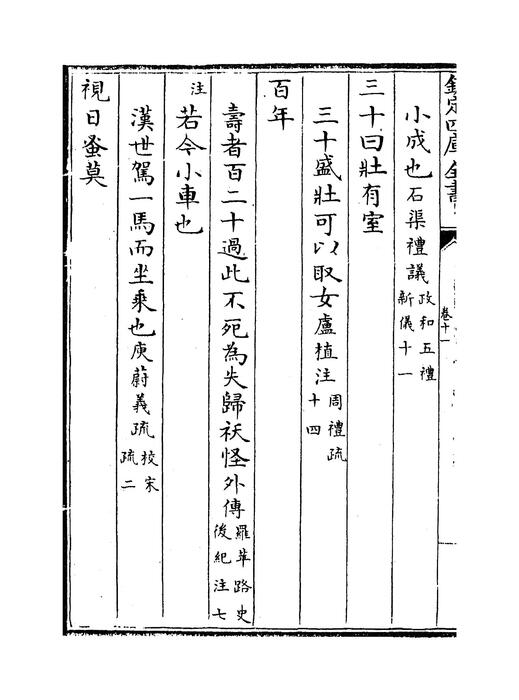 欽定四庫全書
卷十一
小成也石渠禮議政和五禮新儀十一
三十曰壯有室
三十盛壯可以取女盧植注周禮疏十四
百年
壽者百二十過此不死為失歸祅怪外傳羅苹路史後紀注七
注若今小車也
漢世駕一馬而坐乘也庾蔚義疏挍宋疏二
視日蚤莫